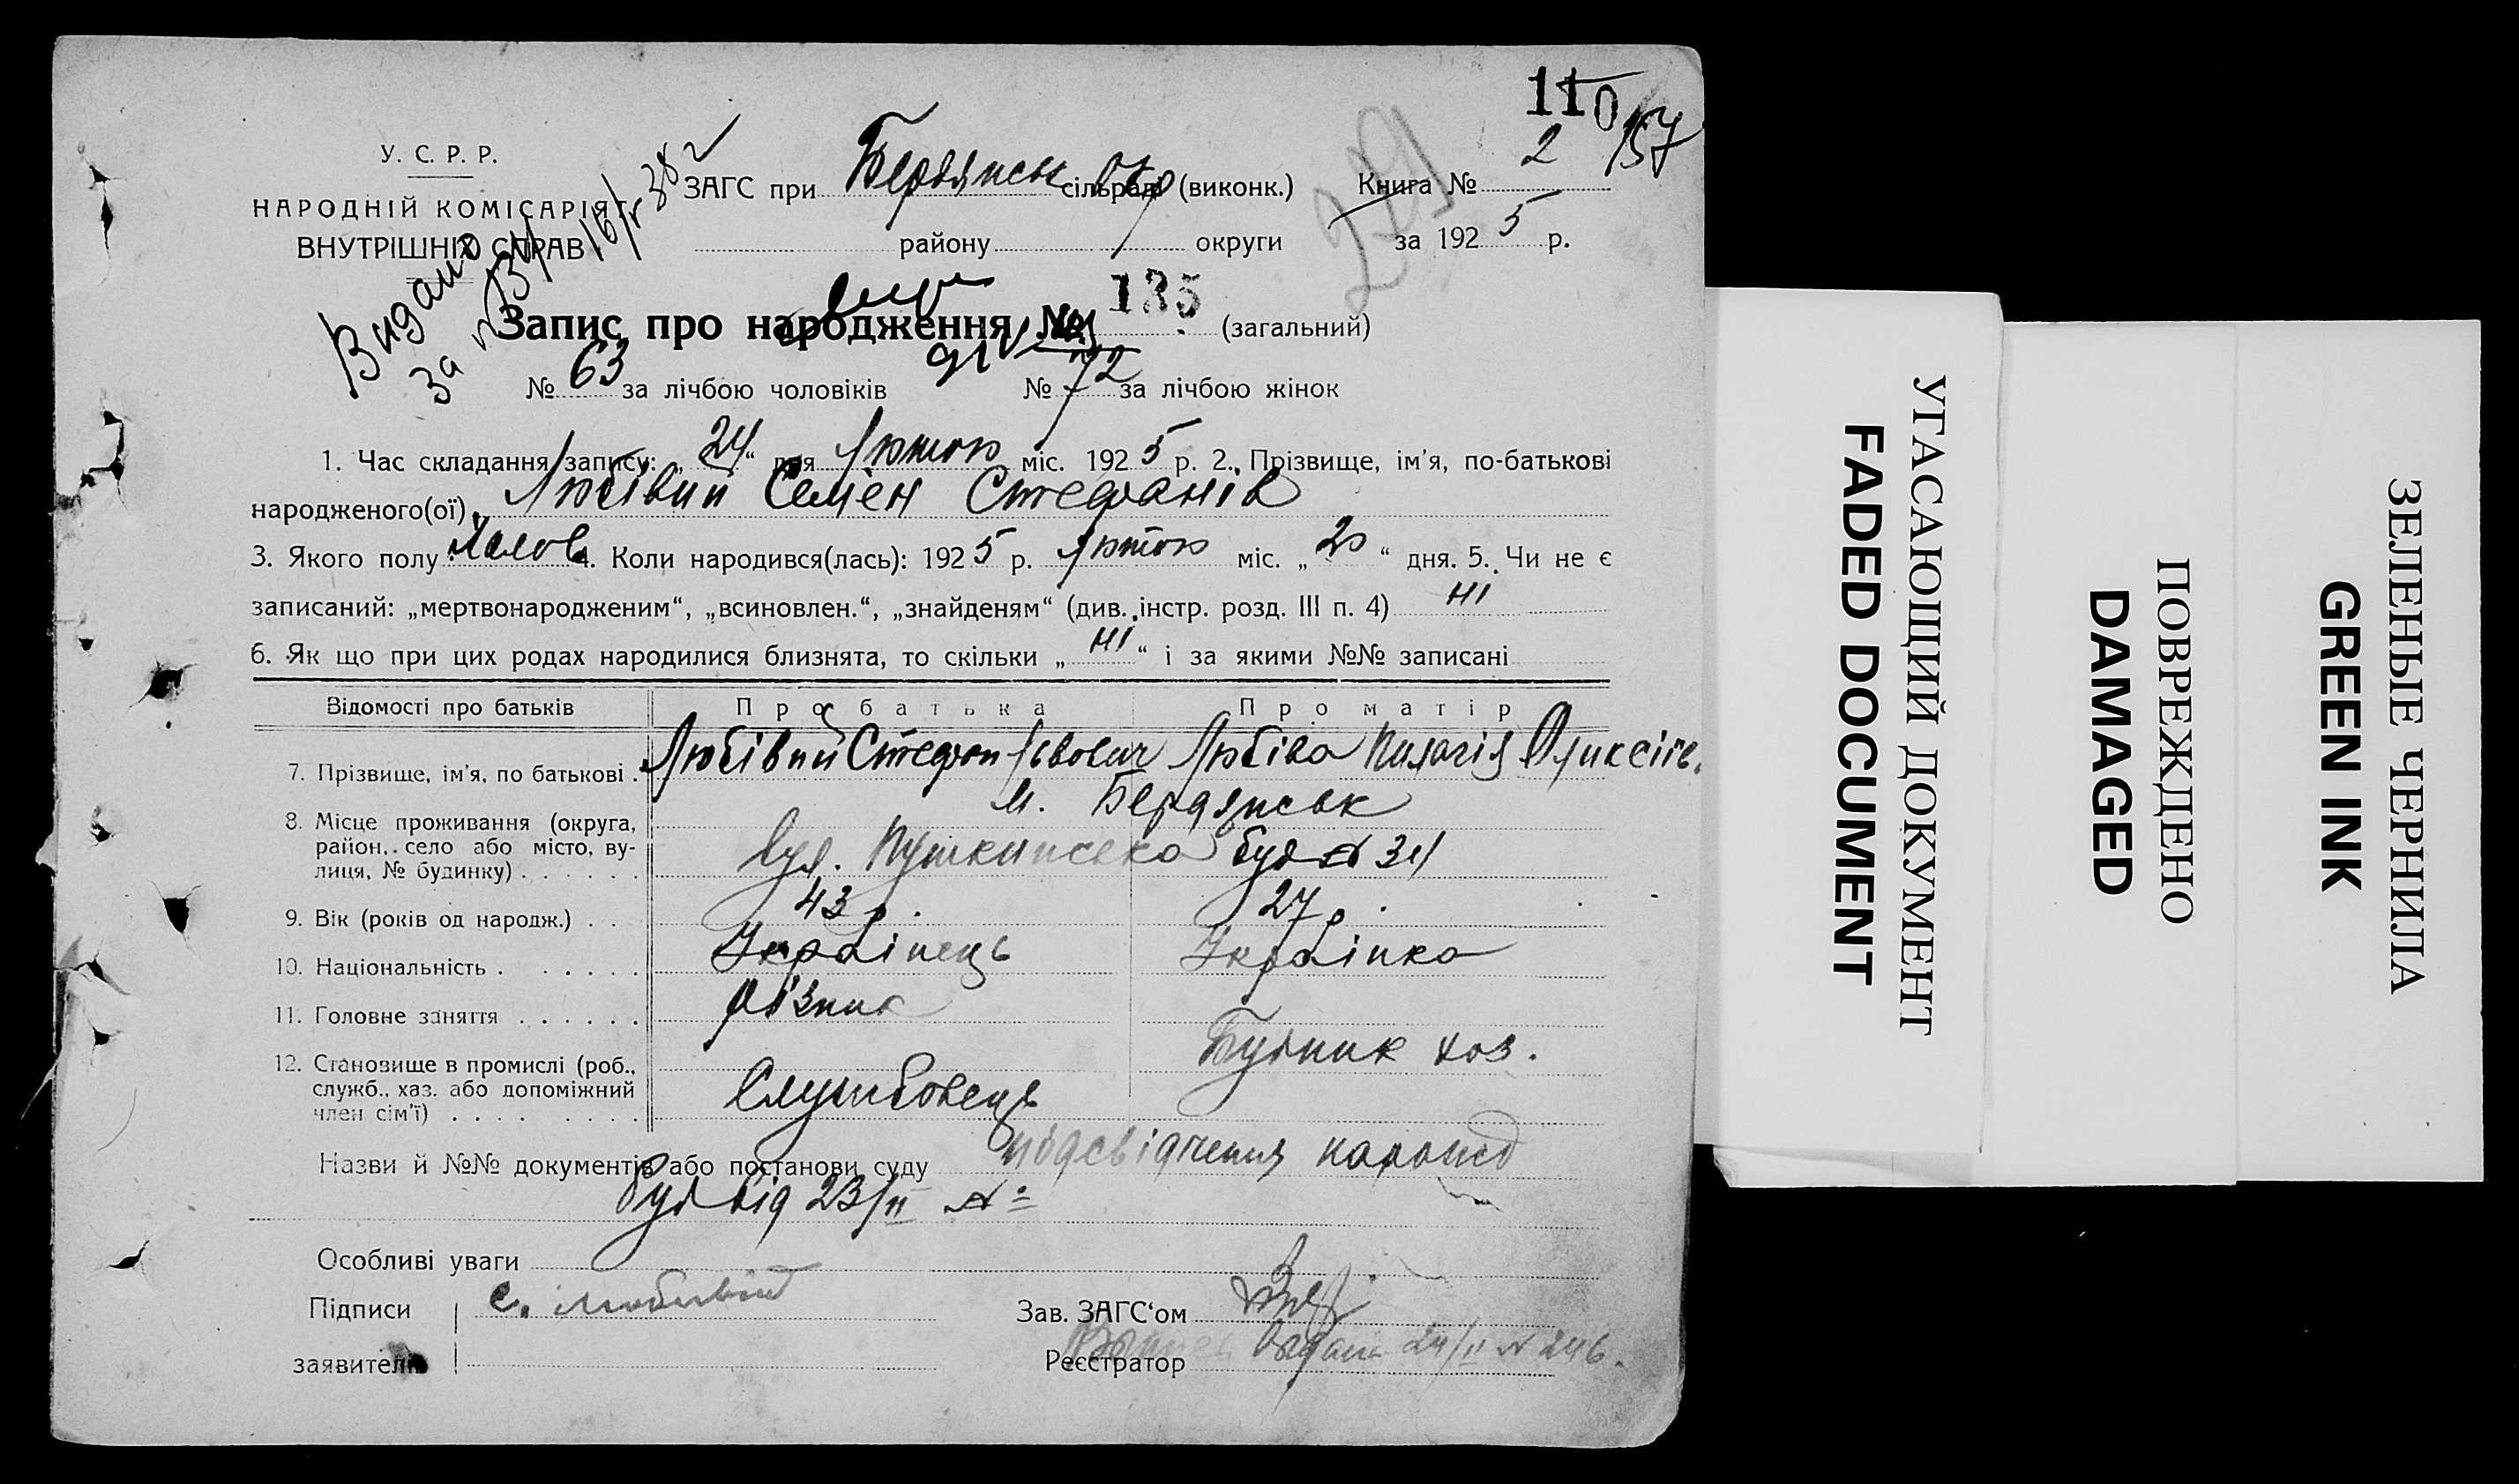 110
157
У. С. Р. Р.
НАРОДНІЙ КОМІСАРІЯТ
ВНУТРІШНІХ СПРАВ
Видано
за №
ЗАГС при Бердянськ сільраді Окр (виконк.) Книга № 2
району округи за 1925 р.
Запис про народження № 135 (загальний)
№ 63 за лічбою чоловіків № 72 за лічбою жінок
1. Час складання запису: „24“ дня Лютого міс. 1925 р. 2. Прізвище, ім’я, по-батькові
народженого(ої) Любівий Семен Стефанів
3. Якого полу 4. Коли народився(лась): 1925 р. Лютого міс. „20“ дня. 5. Чи не є
записаний: „мертвонародженим“, „всиновлен.“, „знайденям“ (див. інстр. розд. III п. 4) ні
6. Як що при цих родах народилися близнята, то скільки „ні“ і за якими №№ записані
Відомості про батьків Про батька Про матір
7. Прізвище, ім’я, по батькові Любівий Стефан Львович Любіва Пилагія Оликсіїв.
8. Місце проживання (округа, район, село або місто, вулиця, № будинку) м. Бердянськ
вул. Пушкинська буд № 31
9. Вік (років од народж.) 43 р. 27 р.
10. Національність Українець Українка
11. Головне заняття різник
12. Становище в промислі (роб., служб., хаз. або допоміжний член сім’ї) Службовець
хоз.
Назви й №№ документів або постанови суду підсвідчення
від 23/II №
Особливі уваги
Підписи С. Любивий Зав. ЗАГС‘ом
заявителів Реєстратор
24/II № 246.
УГАСАЮЩИЙ ДОКУМЕНТ
FADED DOCUMENT
ПОВРЕЖДЕНО
DAMAGED
ЗЕЛЕНЫЕ ЧЕРНИЛА
GREEN INK